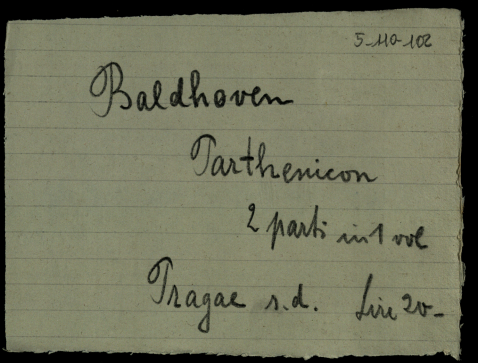 5-110-102
Baldhoven
Parthenicon
2 parti in 1 vol
Pragae s.d. Lire 20-